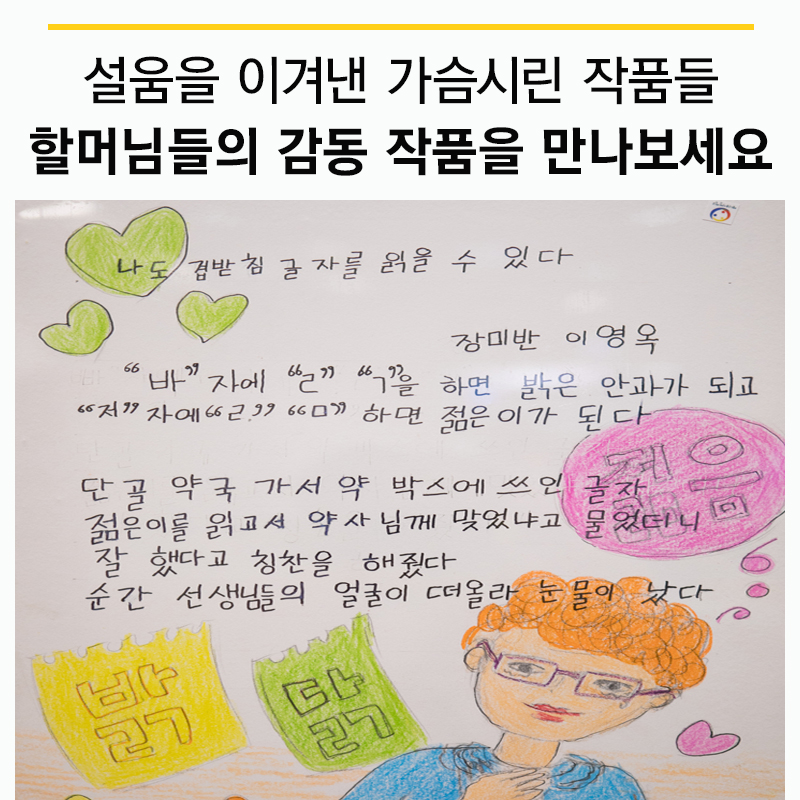 설움을 이겨낸 가슴시린 작품들
할머님들의 감동 작품을 만나보세요
나도 겹받침 글자를 읽을 수 있다
장미반 이영옥
“바”자에 “ㄹ” “ㄱ”을 하면 밝은 안과가 되고
“저”자에“ㄹ”“ㅁ” 하면 젊은이가 된다
단골 약국 가서 약 박스에 쓰인 글자
젊은이를 읽고서 약사님께 맞었냐고 물었더니
잘 했다고 칭찬을 해줬다
순간 선생님들의 얼굴이 떠올라 눈물이 났다
밝
닭